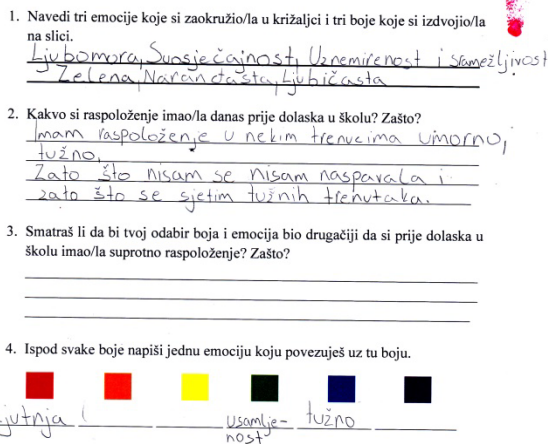 1. Navedi tri emocije koje si zaokružio/la u križaljci i tri boje koje si izdvojio/la
na slici.
Ljubomora, Suosjećajnost, Uznemirenost i sramežljivost
Zelena, Narančasta, Ljubičasta
2. Kakvo si raspoloženje imao/la danas prije dolaska u školu? Zašto?
Imam raspoloženje u nekim trenucima umorno,
tužno.
Zato što nisam se nisam naspavala i
zato što se sjetim tužnih trenutaka.
3. Smatraš li da bi tvoj odabir boja i emocija bio drugačiji da si prije dolaska u
školu imao/la suprotno raspoloženje? Zašto?
4. Ispod svake boje napiši jednu emociju koju povezuješ uz tu boju.
jutnja Usamlje- tužno
nost